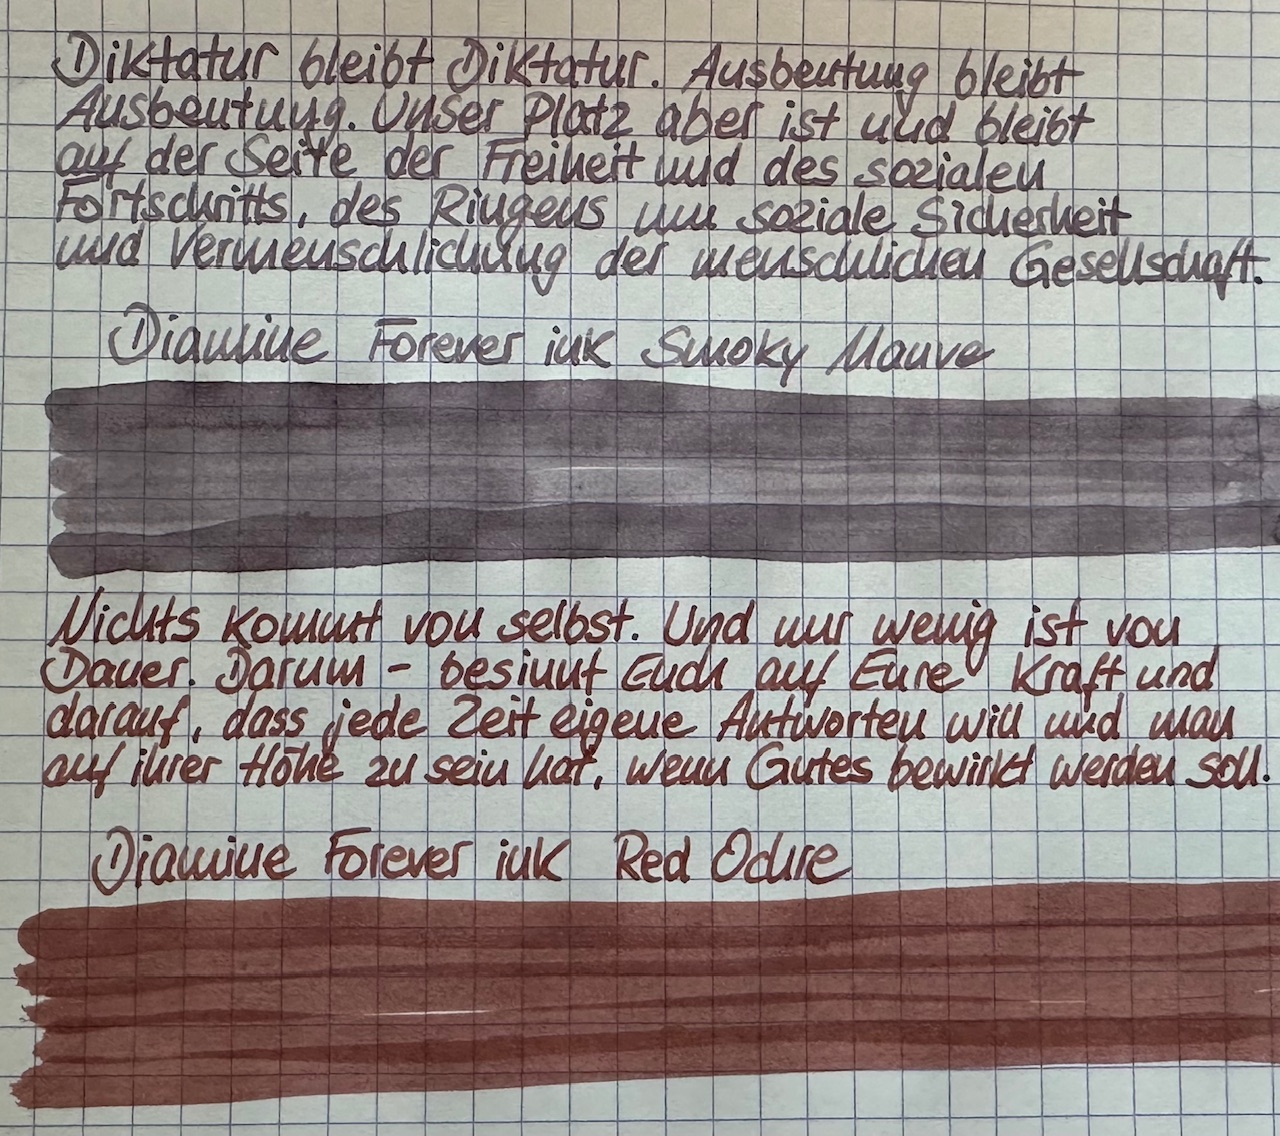 Diktatur bleibt Diktatur. Ausbeutung bleibt
Ausbeutung. Unser Platz aber ist und bleibt
auf der Seite der Freiheit und des sozialen
Fortschritts, des Ringens um soziale Sicherheit
und Vermenschlichung der menschlichen Gesellschaft.
Diamine Forever ink Smoky Mauve
Nichts kommt von selbst. Und nur wenig ist von
Dauer. Darum – besinnt Euch auf Eure Kraft und
darauf, dass jede Zeit eigene Antworten will und man
auf ihrer Höhe zu sein hat, wenn Gutes bewirkt werden soll.
Diamine Forever ink Red Ochre